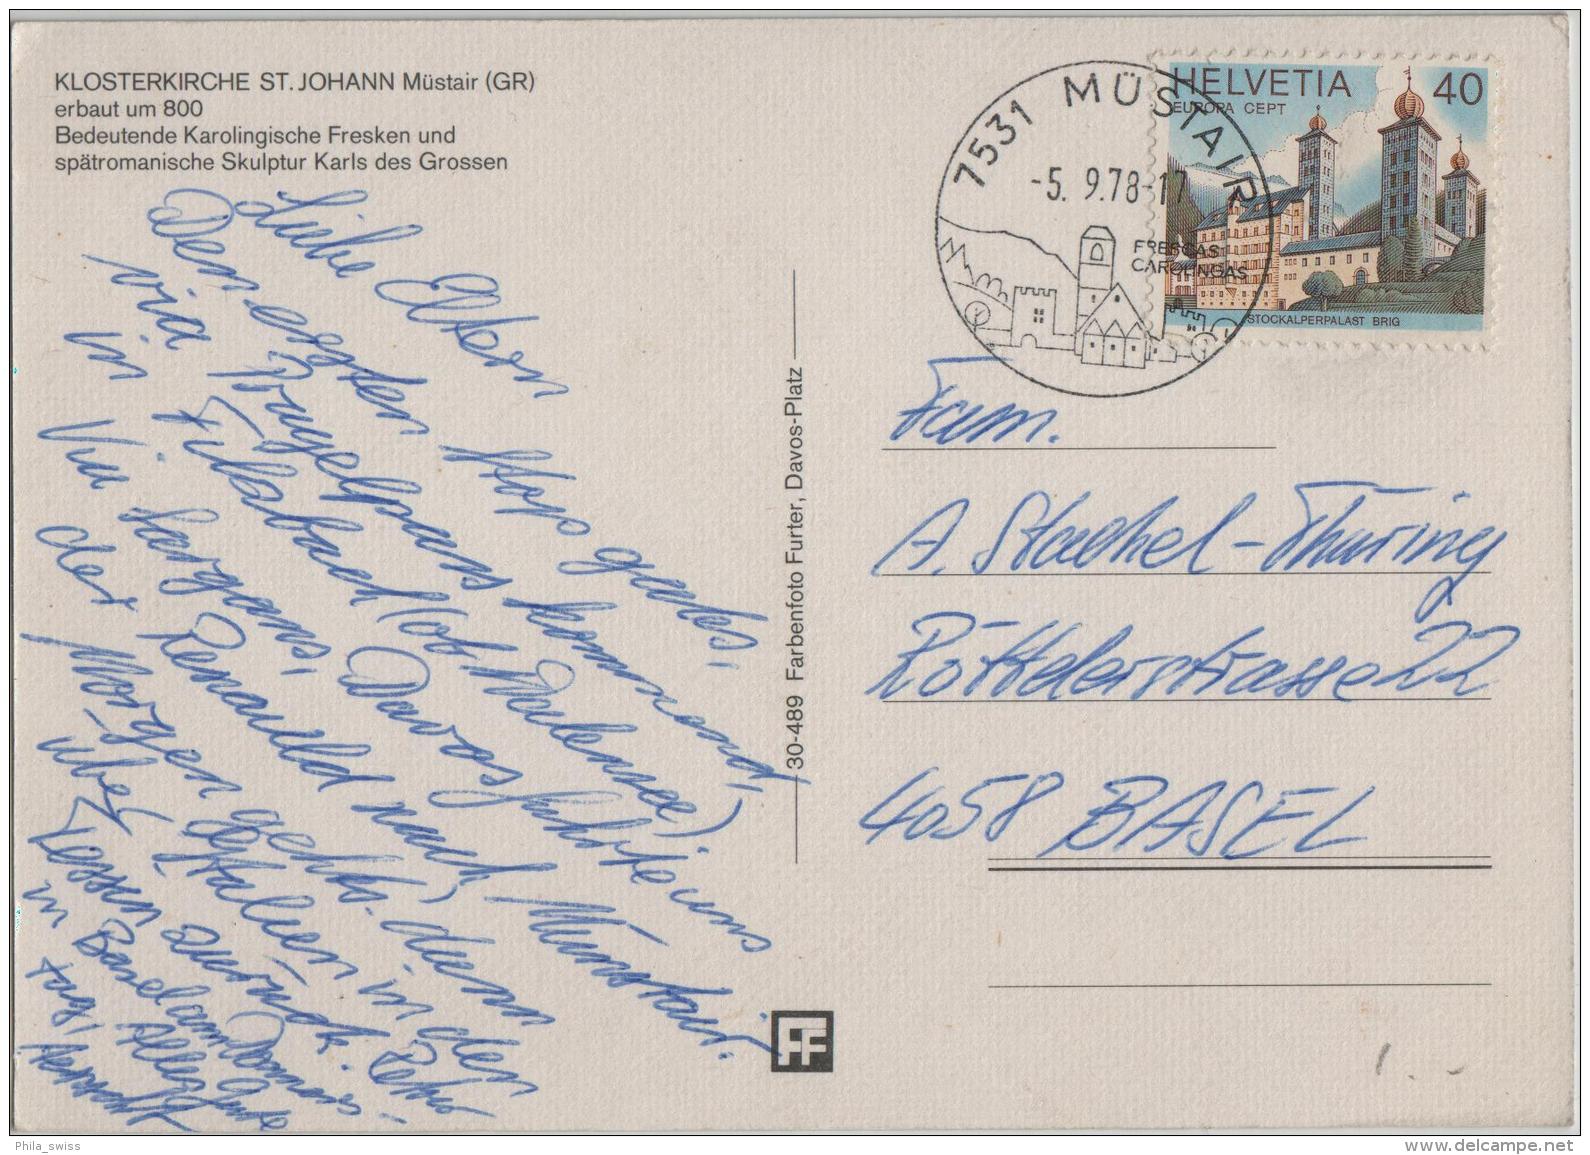 KLOSTERKIRCHE ST. JOHANN Müstair (GR)
erbaut um 800
Bedeutende Karolingische Fresken und
spätromanische Skulptur Karls des Grossen
Liebe Eltern
Den ersten Stop gabs,
via Pragelpass kommend,
in Filzbach (ob Walensee)
Via Sargans, Davos führte uns
der Renault nach Münstair.
Morgen gehts dann
über Italien in den
Tessin zurück. Retour
in Basel am Donners-
tag, Alles Gute
30-489 Farbenfoto Furter, Davos-Platz
FF
7531 MÜSTAIR
-5. 9.78-17
FRESCAS
CAROLINGAS
HELVETIA 40
EUROPA CEPT
STOCKALPERPALAST BRIG
Fam.
A. Stachel-Thüring
Röttelerstrasse 22
4058 BASEL
Phila_swiss
www.delcampe.net